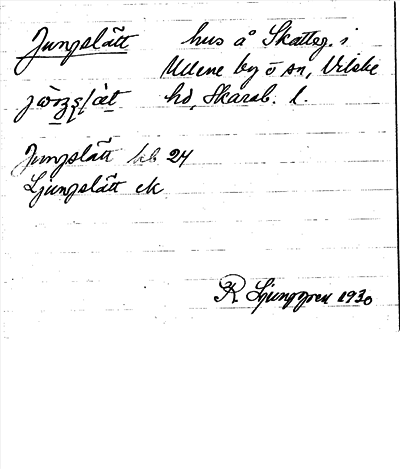 Jungslätt hus å Skatteg. i
Ullene by o sn, Vilske
hd, Skarab. l.
Jungslätt kb 24
Ljungslätt ek
R Ljunggren 1930